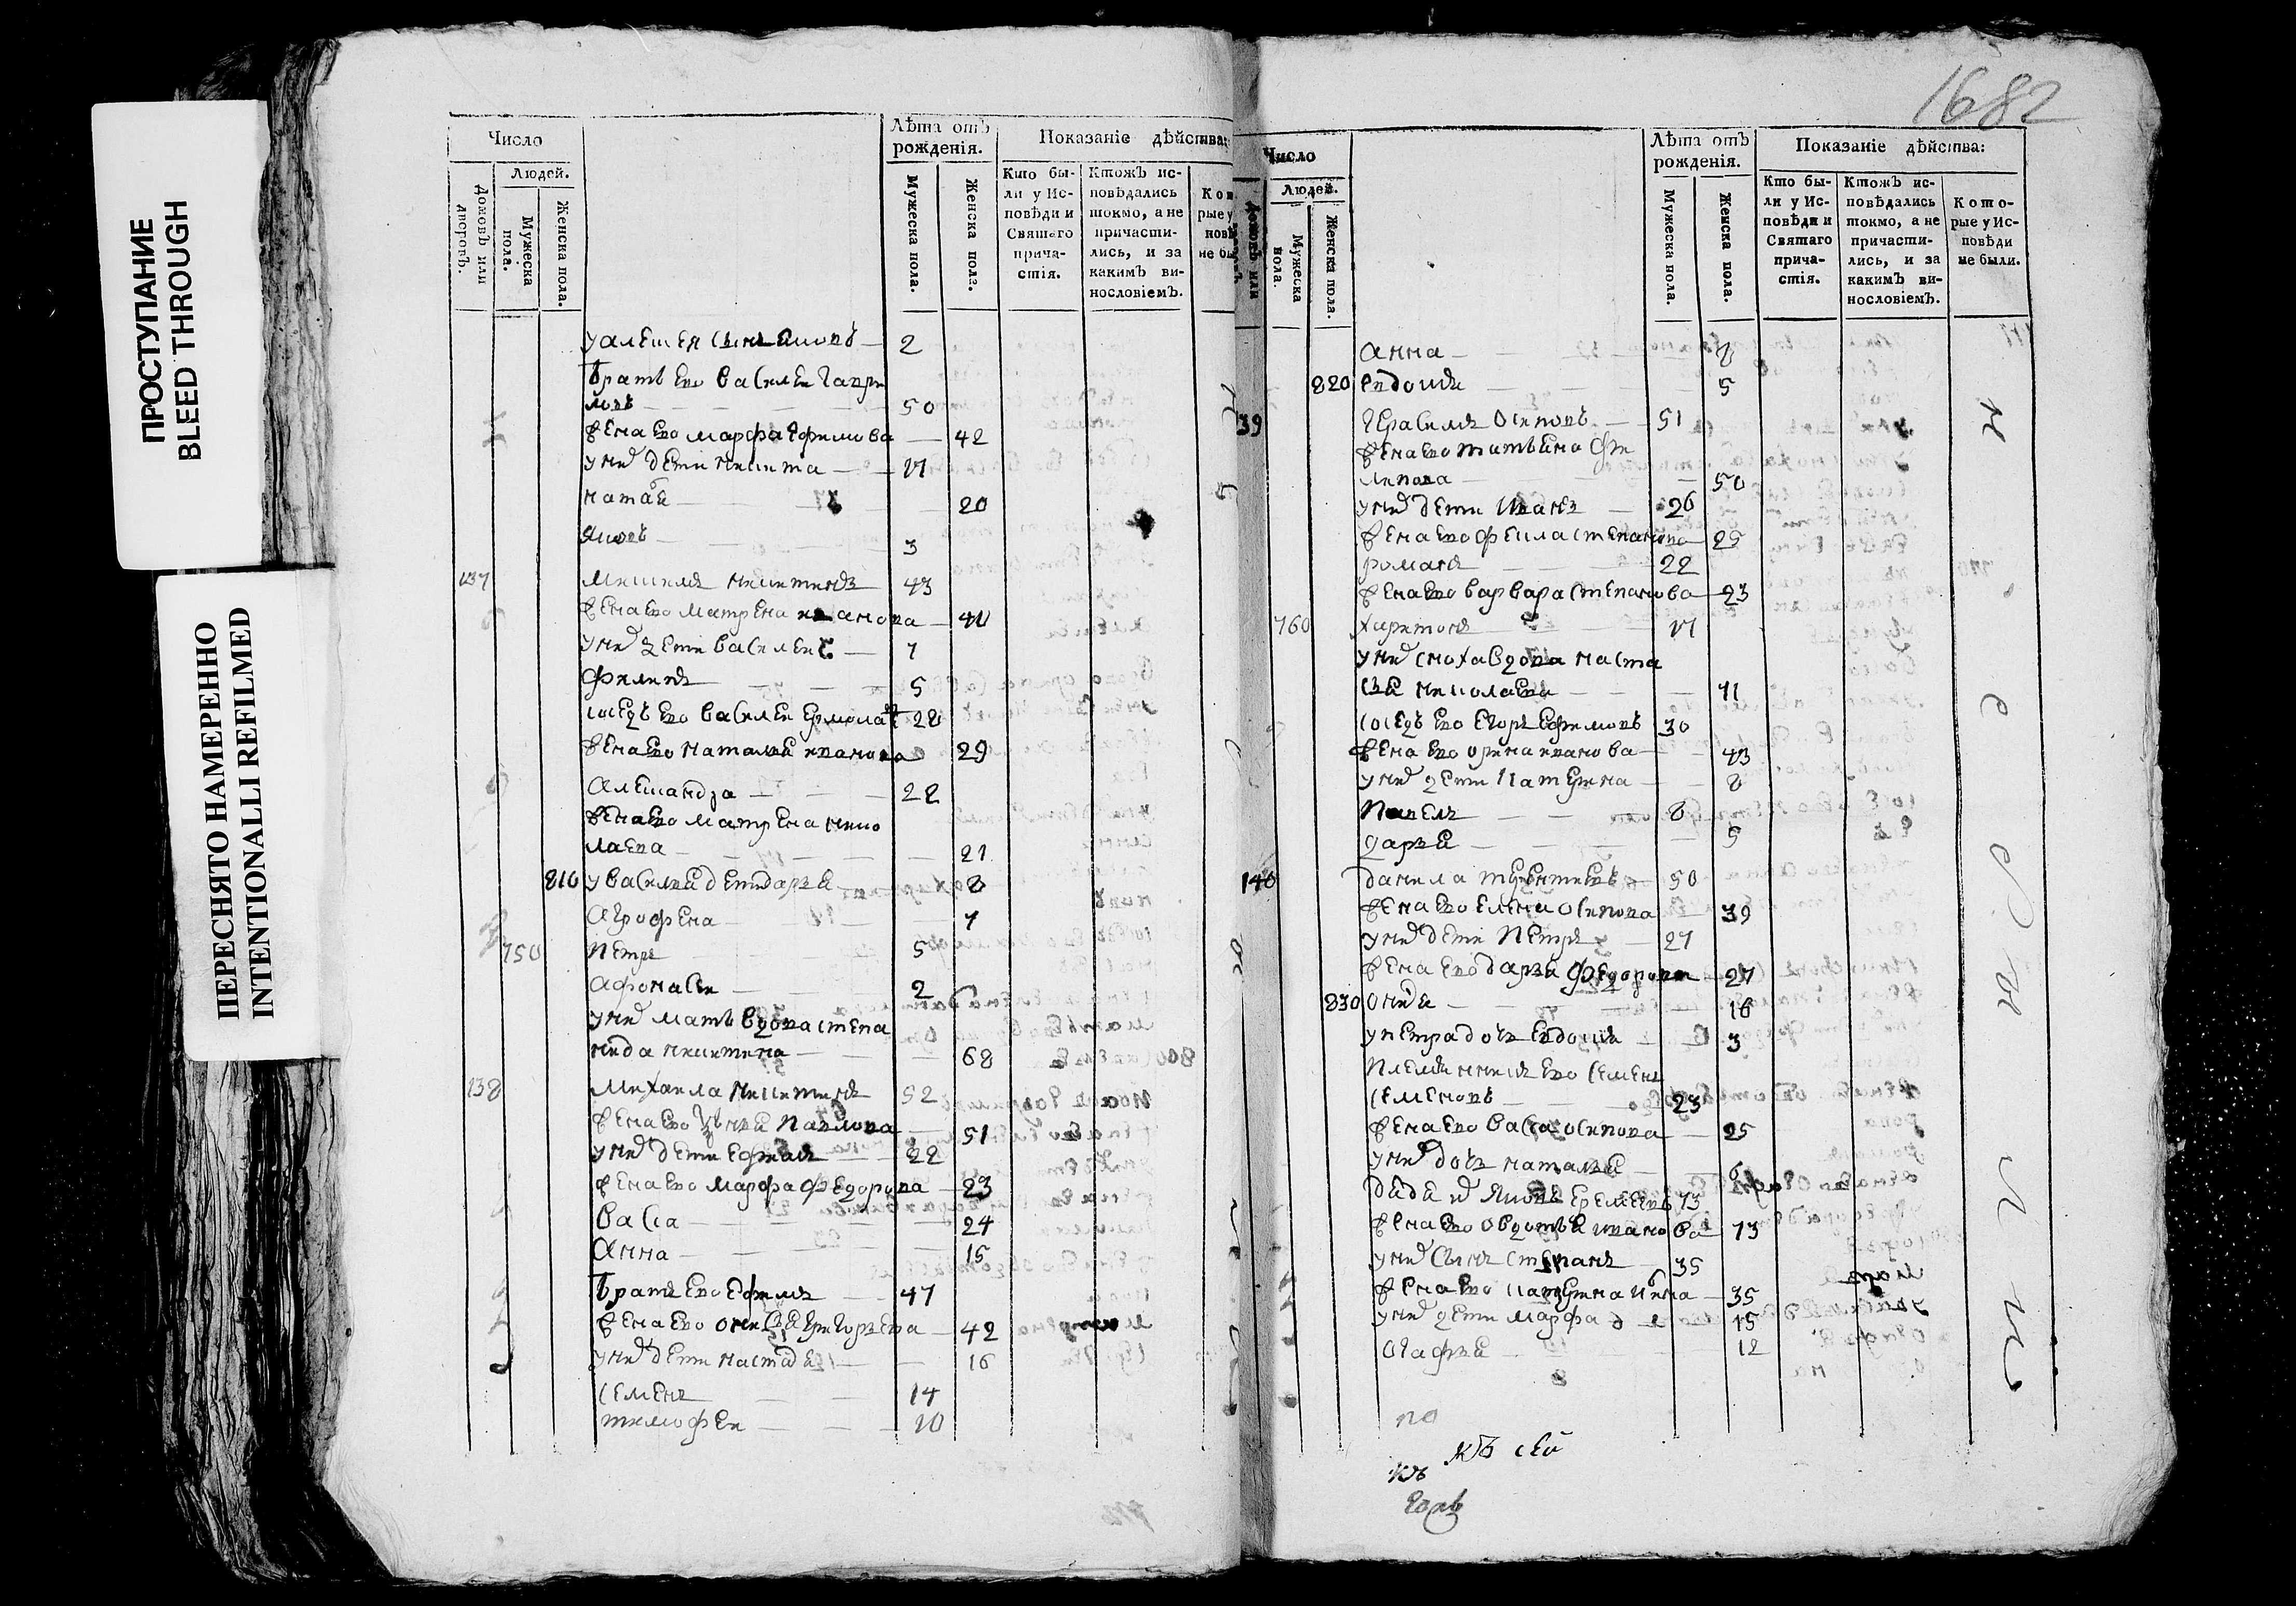 ПРОСТУПАНИЕ
BLEED THROUGH
ПЕРЕСНЯТО НАМЕРЕННО
INTENTIONALLI REFILMED
Число
Людей.
Домовъ или дворовъ.
Мужеска пола.
Женска пола.
Лѣта отъ рожденія.
Мужеска пола.
Женска пола.
Показаніе дѣйства:
Кто были у Исповѣди и Святаго причастія.
Ктожъ исповѣдались токмо, а не причастились, и за какимъ винословіемъ.
у алеѯея сынъ 2
братъ ево василеи гаври
ловъ 50
жена ево марфа ефимова 42
у них дети никита
наталя 20
яковъ 3
137 никитинъ 43
жена ево матрена иванова
у них дети василеи 7
филипъ 5
соседъ ево василеи ермола 28
жена ево наталья иванова 29
александра 22
жена ево матрена нико
лаева 21
810 у василья дети дарья 8
агрофена 7
750 петръ 5
афонасеи 2
у них мать вдова степа
нида никитина 68
138 михаила никитинъ 52
жена ево павлова 51
у них дети 22
жена ево марфа федорова 23
васа 24
анна 15
братъ ево ефимъ 47
жена ево онисья григорьева 42
у них дети настася 16
семенъ 14
тимофеи 10
1682
Число
Людей.
Домовъ или
Мужеска пола.
Женска пола.
Лѣта отъ рожденія.
Мужеска пола.
Женска пола.
Показаніе дѣйства:
Кто были у Исповѣди и Святаго причастія.
Ктожъ исповѣдались токмо, а не причастились, и за какимъ винословіемъ.
Которые у Исповѣди не были.
анна 8
820 евдокия 5
39 герасимъ осиповъ 51
жена ево татьяна фи
липова 50
у них дети иванъ 26
жена ево фекла степанова 25
романъ 22
жена ево варвара степанова 23
760 харитонъ
у них сноха вдова наста
сья николаева
соседъ ево егоръ ефимовъ 30
жена ево орина иванова 43
у них дети катерина 8
павелъ 8
дарья 5
140 данила терентиевъ 50
жена ево елена осипова 39
у них дети петръ 27
жена ево дарья федорова 27
830 16
у петра дочь евдокия 3
племянникъ ево семенъ
семеновъ 23
жена ево васа осипова 25
у них дочь наталья 6
дядя их яковъ еремеевъ 73
жена ево овдотья иванова 73
у них сынъ степанъ 35
жена ево катерина 35
у них дети марфа 15
огафья 12
по
къ сей
къ